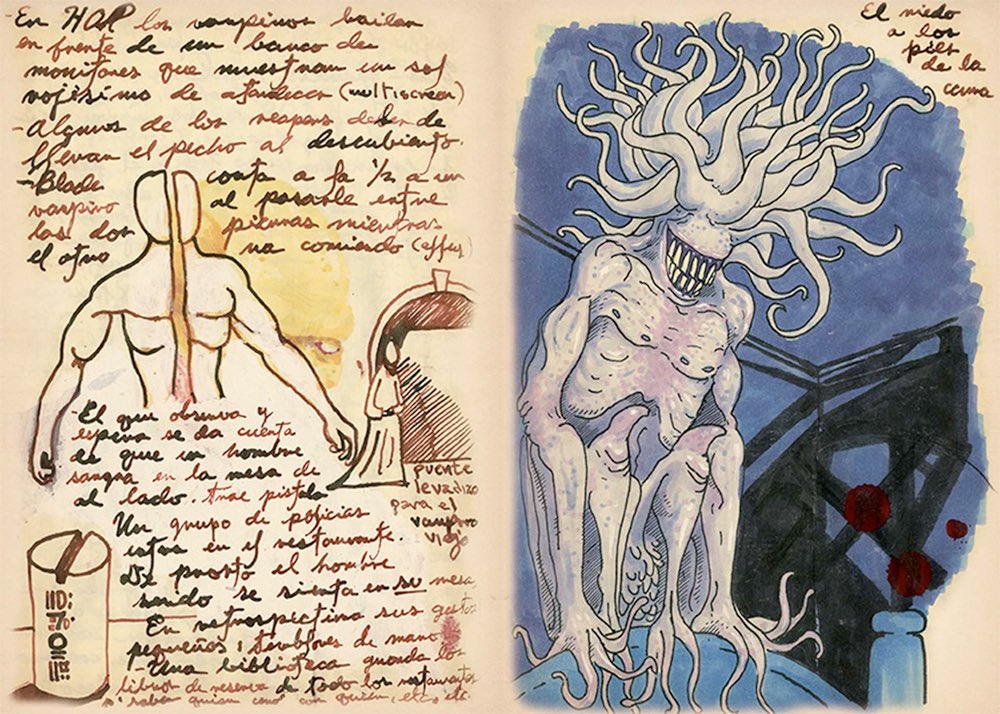 -En HOP los vampiros bailan
en frente de un banco de
monitores que muestran un sol
rojisimo de atardecer (multiscreen)
-Algunos de los reapers deben de
llevan el pecho al descubierto.
-Blade corta a fa 1/2 a un
vampiro al pasarle entre
las dos piernas mientras
el otro va corriendo (effex)
-El que observa y
espera se da cuenta
de que un hombre
sangra en la mesa de
al lado. Trae pistola
Un grupo de policias
estan en el restaurante.
De pronto el hombre
se sienta en su mesa
En retrospectiva sus gestos
pequeños, temblores de mano
Una biblioteca guarda los
libros de reserva de todo los restaurantes
saben quien cenó con quien, etc, etc.
puente
levadizo
para el
vampiro
viejo
El miedo
a los
pies
de la
cama